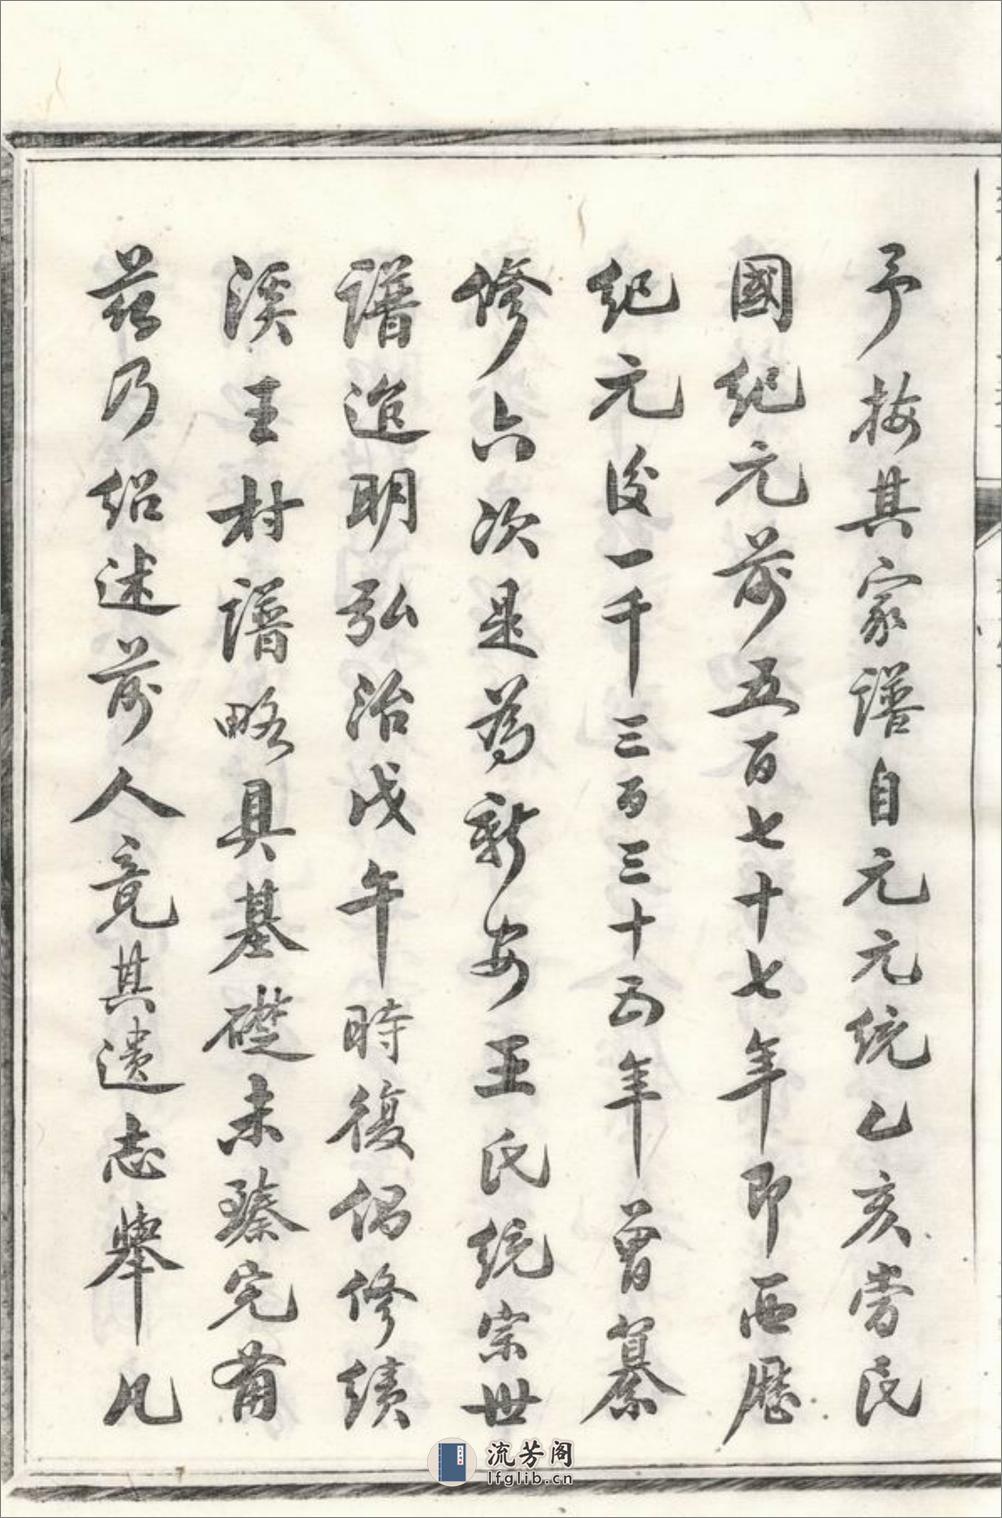 予按其家譜自元元統乙亥當民
國紀元前五百七十七年即西歷
紀元後一千三百三十五年曾纂
修六次是為新安王氏統宗世
譜迨明弘治戊午時復倡修續
溪王村譜略具基礎未臻完備
茲乃紹述前人竟其遺志舉凡
流芳阁
lfglib.cn